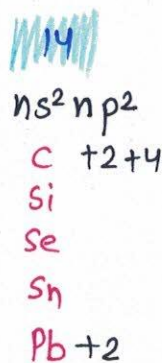 14
ns² np²
C +2+4
Si
Se
Sn
Pb +2